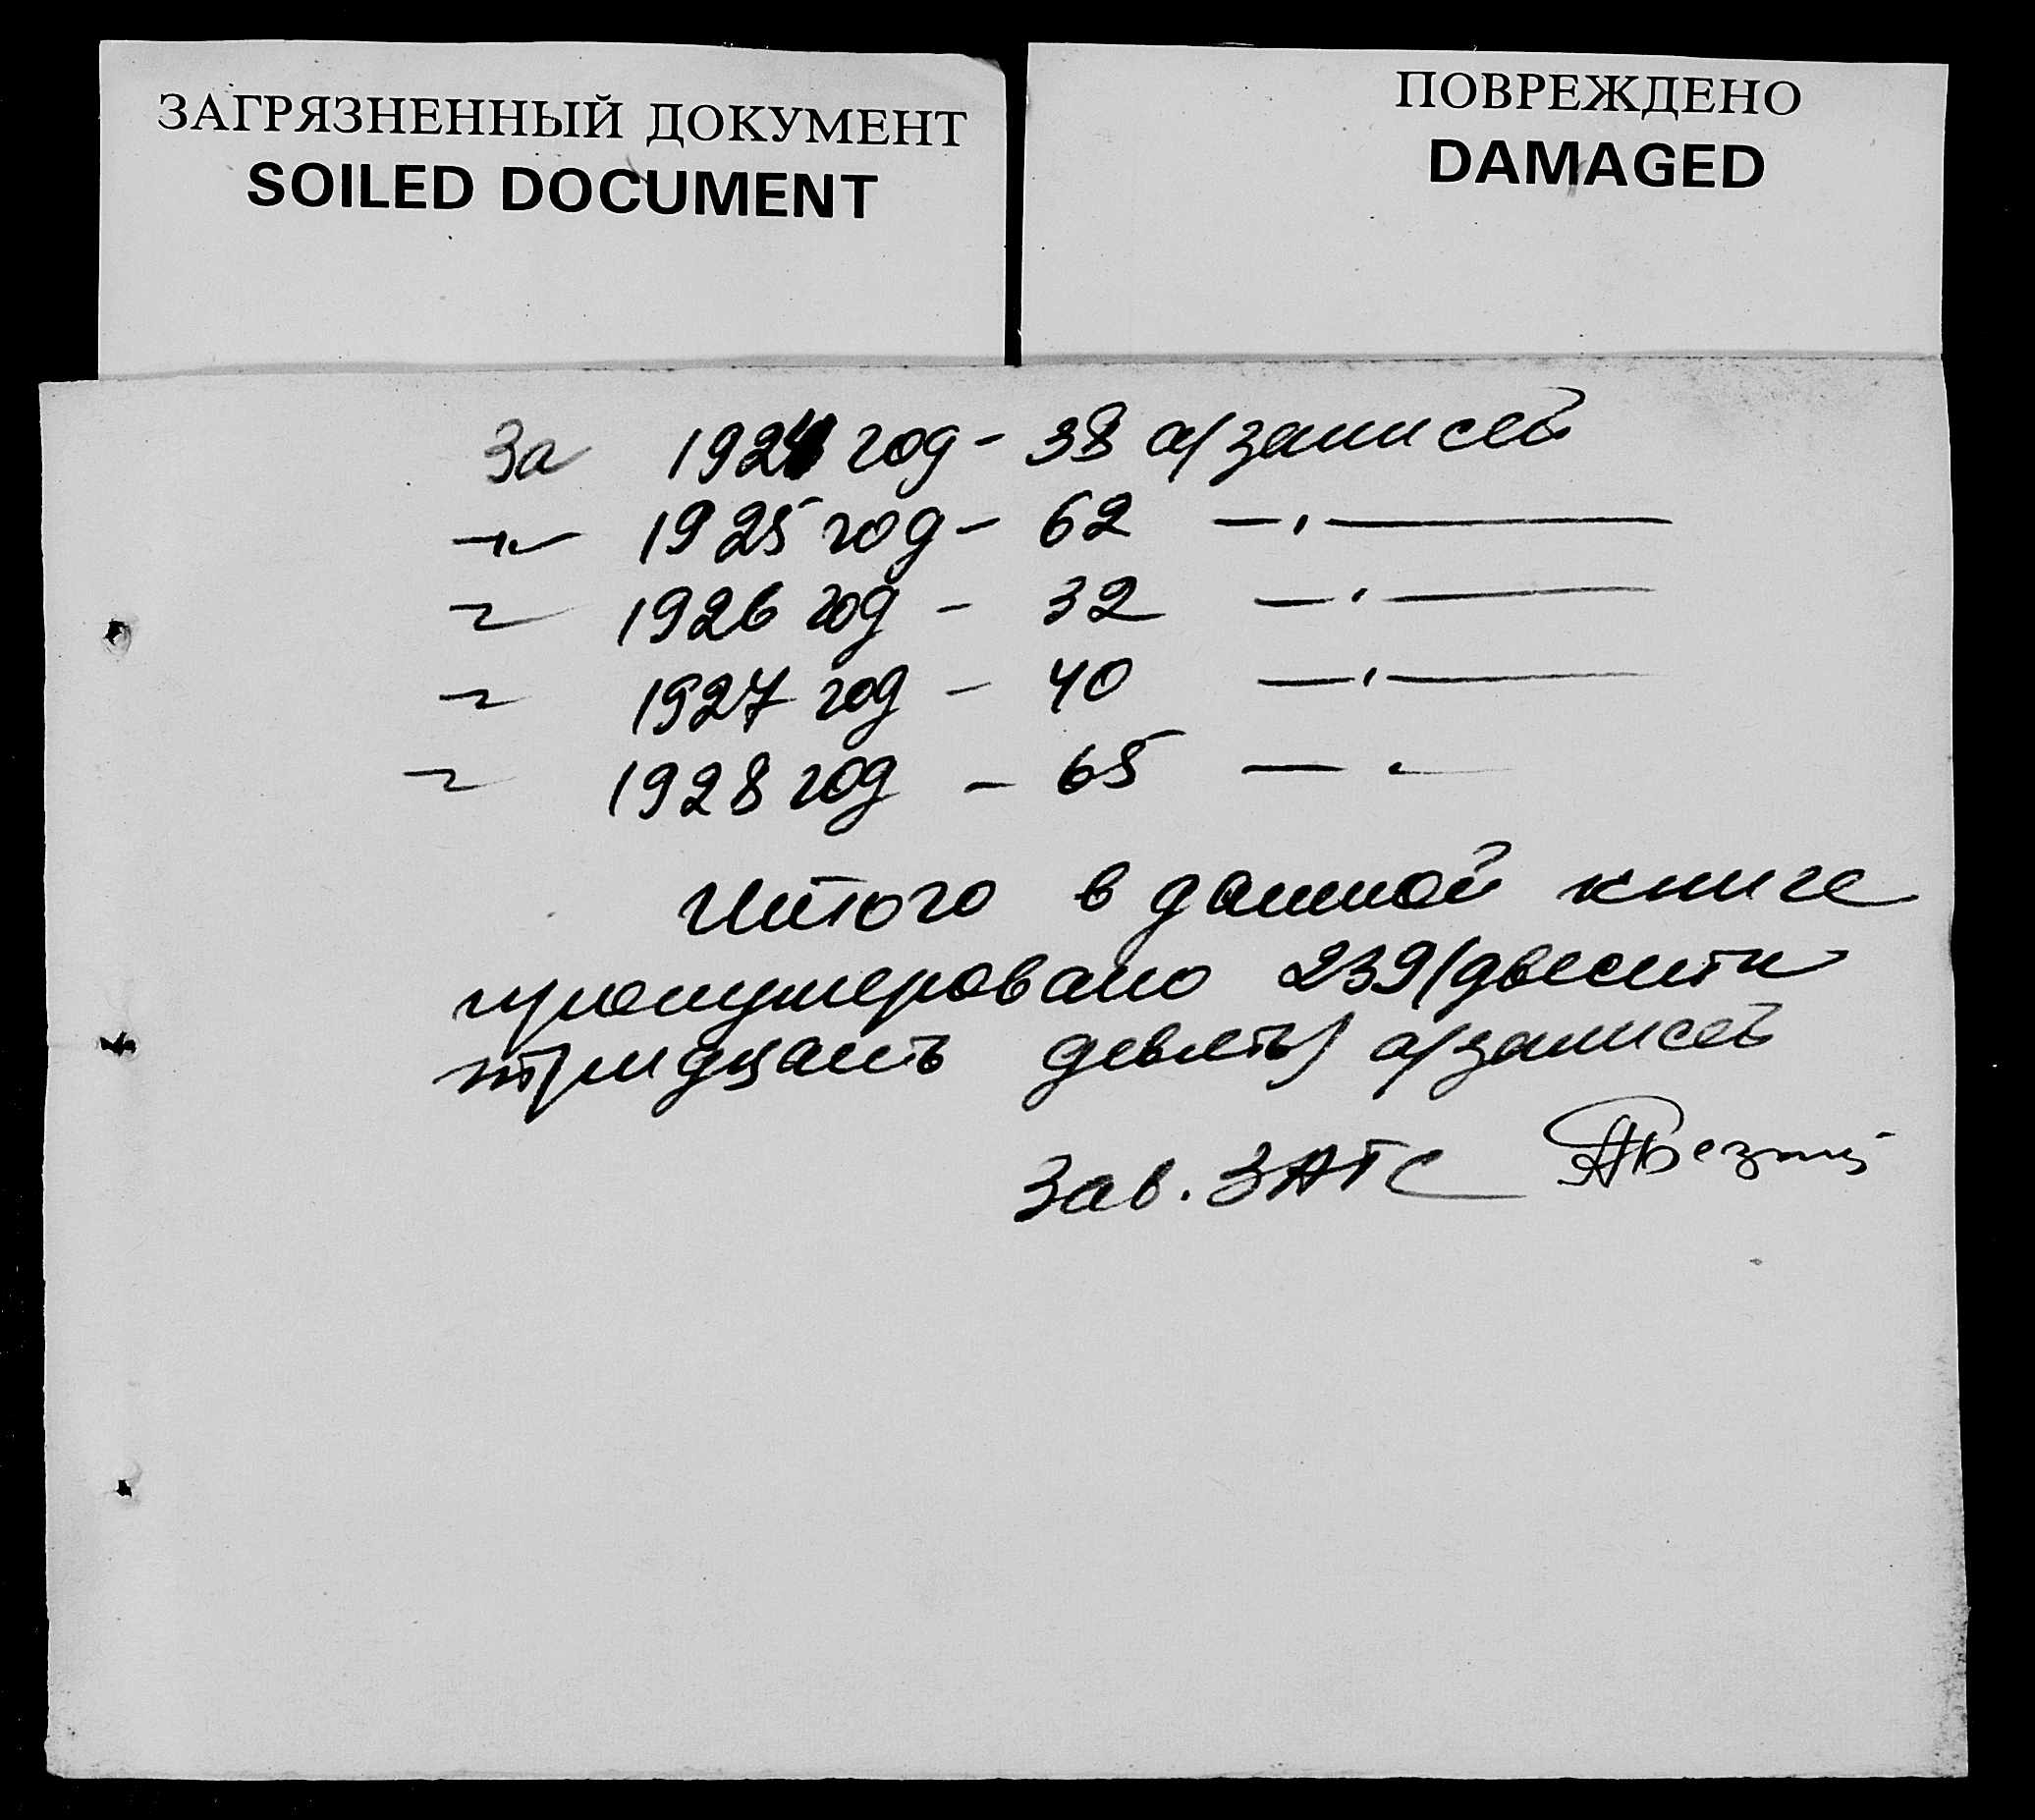 ЗАГРЯЗНЕННЫЙ ДОКУМЕНТ
SOILED DOCUMENT
ПОВРЕЖДЕНО
DAMAGED
За 1924 год - 38 а/записей
—„— 1925 год - 62 —„—
—„— 1926 год - 32 —„—
—„— 1927 год - 40 —„—
—„— 1928 год - 65 —„—
Итого в данной книге
пронумеровано 239 (двести
тридцать девять) а/записей
Зав. ЗАГС